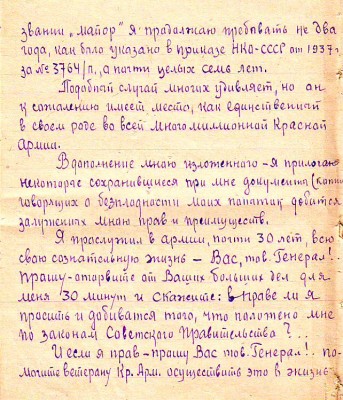 звании „майор" я продолжаю пребывать не два
года, как было указано в приказе НКО-СССР от 1937 г.
за № 3764/п., а почти целых семь лет.
Подобный случай многих удивляет, но он
к сожалению имеет место, как единственный
в своем роде во всей многомиллионной Красной
Армии.
В дополнение мною изложенного – я прилагаю
некоторые сохранившиеся при мне документы (копии
говорящих о безплодности моих попыток добится
заслуженных мною прав и преимуществ.
Я прослужил в армии, почти 30 лет, всю
свою сознательную жизнь – Вас, тов. Генерал!..
прошу – оторвите от Ваших больших дел для
меня 30 минут и скажите: в праве ли я
просить и добиватся того, что положено мне
по законам Советского Правительства?..
И если я прав – прошу Вас тов. Генерал!.. по-
могите ветерану Кр. Арм. осуществить это в жизнь